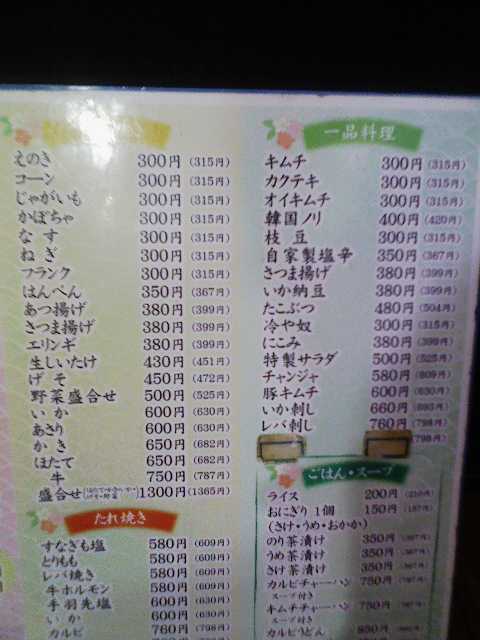 えのき 300円(315円)
コーン 300円(315円)
じゃがいも 300円(315円)
かぼちゃ 300円(315円)
なす 300円(315円)
ねぎ 300円(315円)
フランク 300円(315円)
はんぺん 350円(367円)
あつ揚げ 380円(399円)
さつま揚げ 380円(399円)
エリンギ 380円(399円)
生しいたけ 430円(451円)
げそ 450円(472円)
野菜盛合せ 500円(525円)
いか 600円(630円)
あさり 600円(630円)
かき 650円(682円)
ほたて 650円(682円)
牛 750円(787円)
盛合せ 1300円(1365円)
たれ焼き
すなぎも塩 580円(609円)
とりもも 580円(609円)
レバ焼き 580円(609円)
牛ホルモン 580円(609円)
手羽先塩 600円(630円)
いか 600円(630円)
カルビ 760円(798円)
一品料理
キムチ 300円(315円)
カクテキ 300円(315円)
オイキムチ 300円(315円)
韓国ノリ 400円(420円)
枝豆 300円(315円)
自家製塩辛 350円(367円)
さつま揚げ 380円(399円)
いか納豆 380円(399円)
たこぶつ 480円(504円)
冷や奴 300円(315円)
にこみ 380円(399円)
特製サラダ 500円(525円)
チャンジャ 580円(609円)
豚キムチ 600円(630円)
いか刺し 660円(693円)
レバ刺し 760円(798円)
(798円)
ごはん・スープ
ライス 200円(210円)
おにぎり1個 150円(157円)
(さけ・うめ・おかか)
のり茶漬け 350円(367円)
うめ茶漬け 350円(367円)
さけ茶漬け 350円(367円)
カルビチャーハン 750円(787円)
スープ付き
キムチチャーハン 750円(787円)
スープ付き
カルビうどん 850円